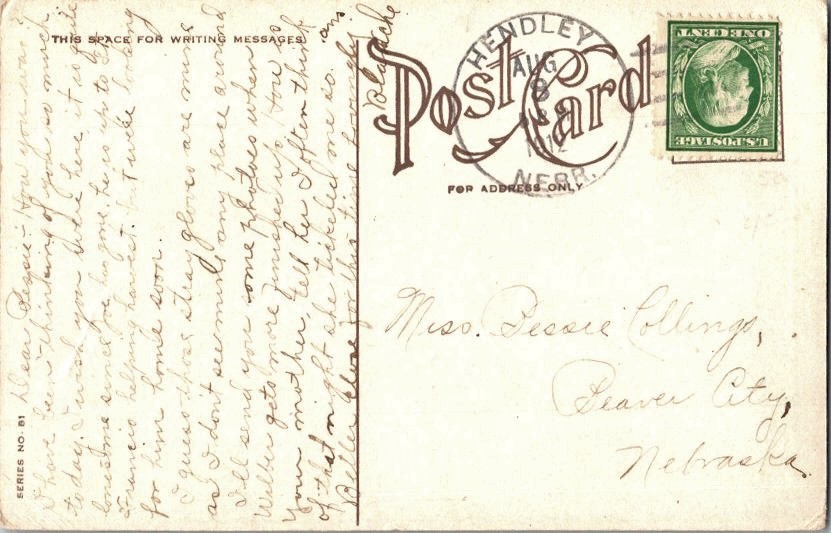 THIS SPACE FOR WRITING MESSAGES
Post Card
FOR ADDRESS ONLY
SERIES NO. 81
HENDLEY
AUG
8
1912
NEBR.
U.S. POSTAGE
ONE CENT
Dear Bessie:- How you was?
I have been thinking of you so much
today. I wish you were here, it is quite
lonesome since Joe has gone, he is up to
Francis helping harvest. but will be
for him home soon.
I guess those stray gloves are mine
as I don't see mine any place and
I'll send you some photoes when
Wilber gets more finished up. How is
your mother, tell her I often think
of that night she tickled me so.
Better close for this time lovingly
ans
Blanche
Miss. Bessie Collings,
Beaver City,
Nebraska.